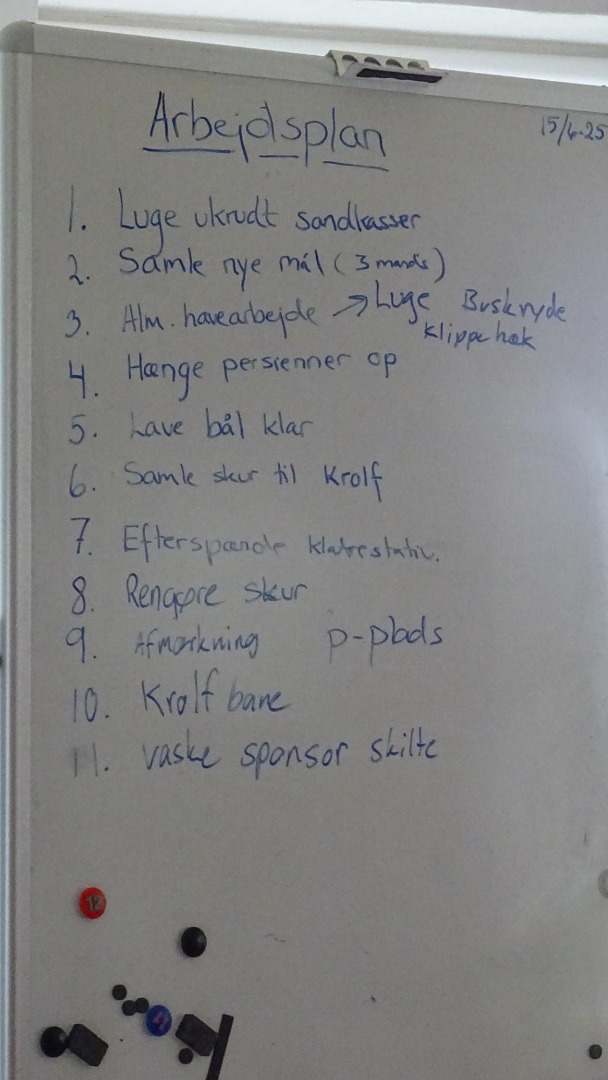 Arbejdsplan
15/6-25
1. Luge ukrudt sandkasser
2. Samle nye mål (3 mands)
3. Alm. havearbejde → Luge Buskryde
Klippe hæk
4. Hænge persienner op
5. Lave bål klar
6. Samle skur til Krolf
7. Efterspænde klatrestativ.
8. Rengøre skur
9. Afmærkning p-plads
10. Krolf bane
11. vaske sponsor skilte
12
4